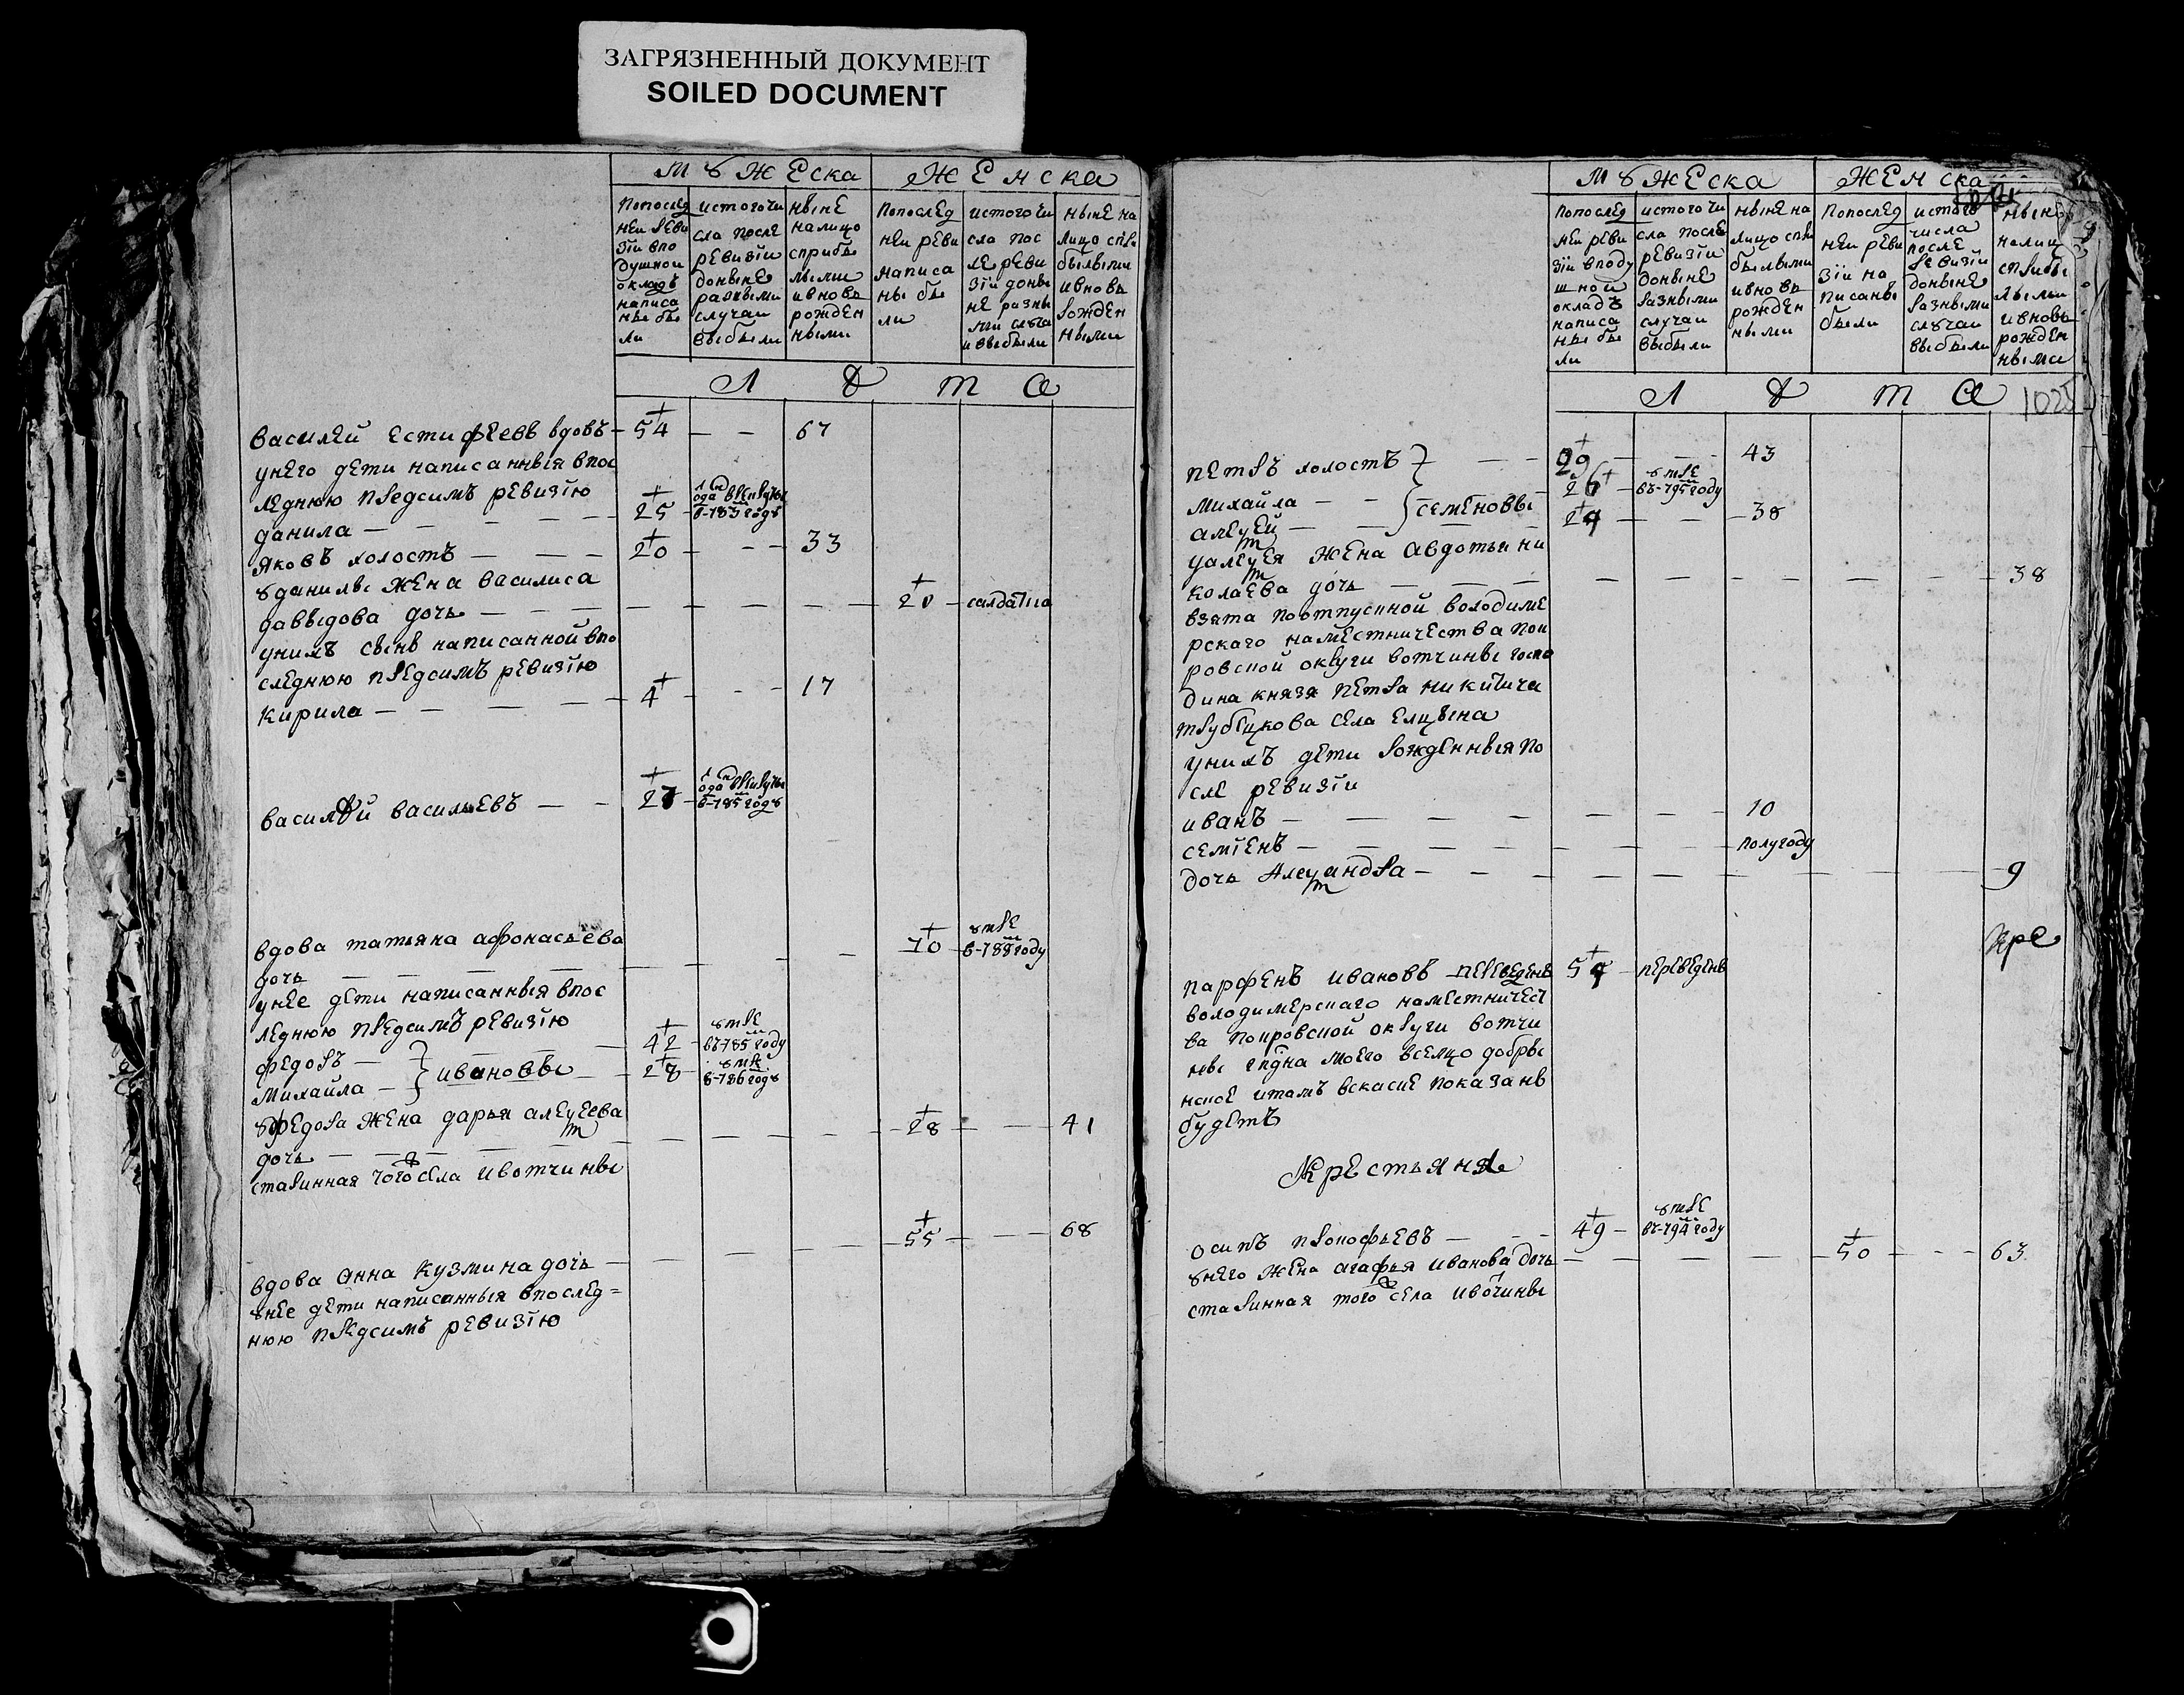 ЗАГРЯЗНЕННЫЙ ДОКУМЕНТ
SOILED DOCUMENT
мꙋжеска женска
попослед неи реви зïи впо душнои окладъ написа ны бы ли
истогочи сла после ревизïи доныне разными случаи выбыли
ныне налицо сприбы лыми ивновь рожден ными
попослед неи реви написа ны бы ли
истогочи сла пос ле реви зïи доны не разны ми случа и выбыли
ныне на лицо спри былыми ивновь рожден ными
л ѣ т а
василей естифеевъ вдовъ 54 — — 67
унего дети написанныя впос
леднюю предсимъ ревизïю
данила — — — 25 одан врекруты в-783м годꙋ
яковъ холостъ — — — 20 — — — 33
ꙋданилы жена василиса
давыдова дочь — — — 20 — салдатка
унихъ сынъ написанной впо
следнюю предсимъ ревизïю
кирила — — — 4 — — — 17
василѣй васильевъ — — 27 одан врекруты в-785м годꙋ
вдова татьяна афонасьева
дочь — — — 70 ꙋмре в-788м году
унее дети написанныя впос
леднюю предсимъ ревизïю
федоръ — 42 ꙋмре въ-785м году
михайла — } ивановы — 28 ꙋмре в-786 годꙋ
ꙋфедора жена дарья алеѯеева
дочь — — — 28 — — 41
старинная тогоѣ села ивотчины
вдова анна кузмина дочь — — — 55 — — — 68
ꙋнее дети написанныя впослед=
нюю предсимъ ревизïю
мꙋжеска женска
попослед неи реви зïи вподу шной окладъ написа ны бы ли
истогочи сла после ревизïи доныне разными случаи выбыли
ныне на лицо спри былыми ивновь рожден ными
попослед неи реви зïи на писаны были
истого числа после ревизïи доныне разными слꙋчаи выбыли
ныне налиц сприбы лыми ивновь рожден ными
л ѣ т а 1025
петръ холостъ } — — 29 — — 43
михайла — — } семеновы — 26 ꙋмре въ-795м году
алеѯей — — 24 — — 38
уалеѯея жена авдотья ни
колаева дочь — — — 38
взята поотпускной володиме
рскаго наместничества пок
ровской округи вотчины госпо
дина князя петра никитича
трубецкова села елцына
унихъ дети рожденныя по
сле ревизïи
иванъ — — — — 10
семïенъ — — — — полугоду
дочь алеѯандра — — — — 9
кре
парфенъ ивановъ переведенъ 54 переведенъ
володимерскаго наместничест
ва покровской округи вотчи
ны гпдна моего
ское итамъ вскаске показанъ
будетъ
Крестьяня
осипъ прокофьевъ — — 49 — ꙋмре въ-794м году
ꙋнего жена агафья иванова дочь — — — 50 — — 63
старинная тогоѣ села ивотчины